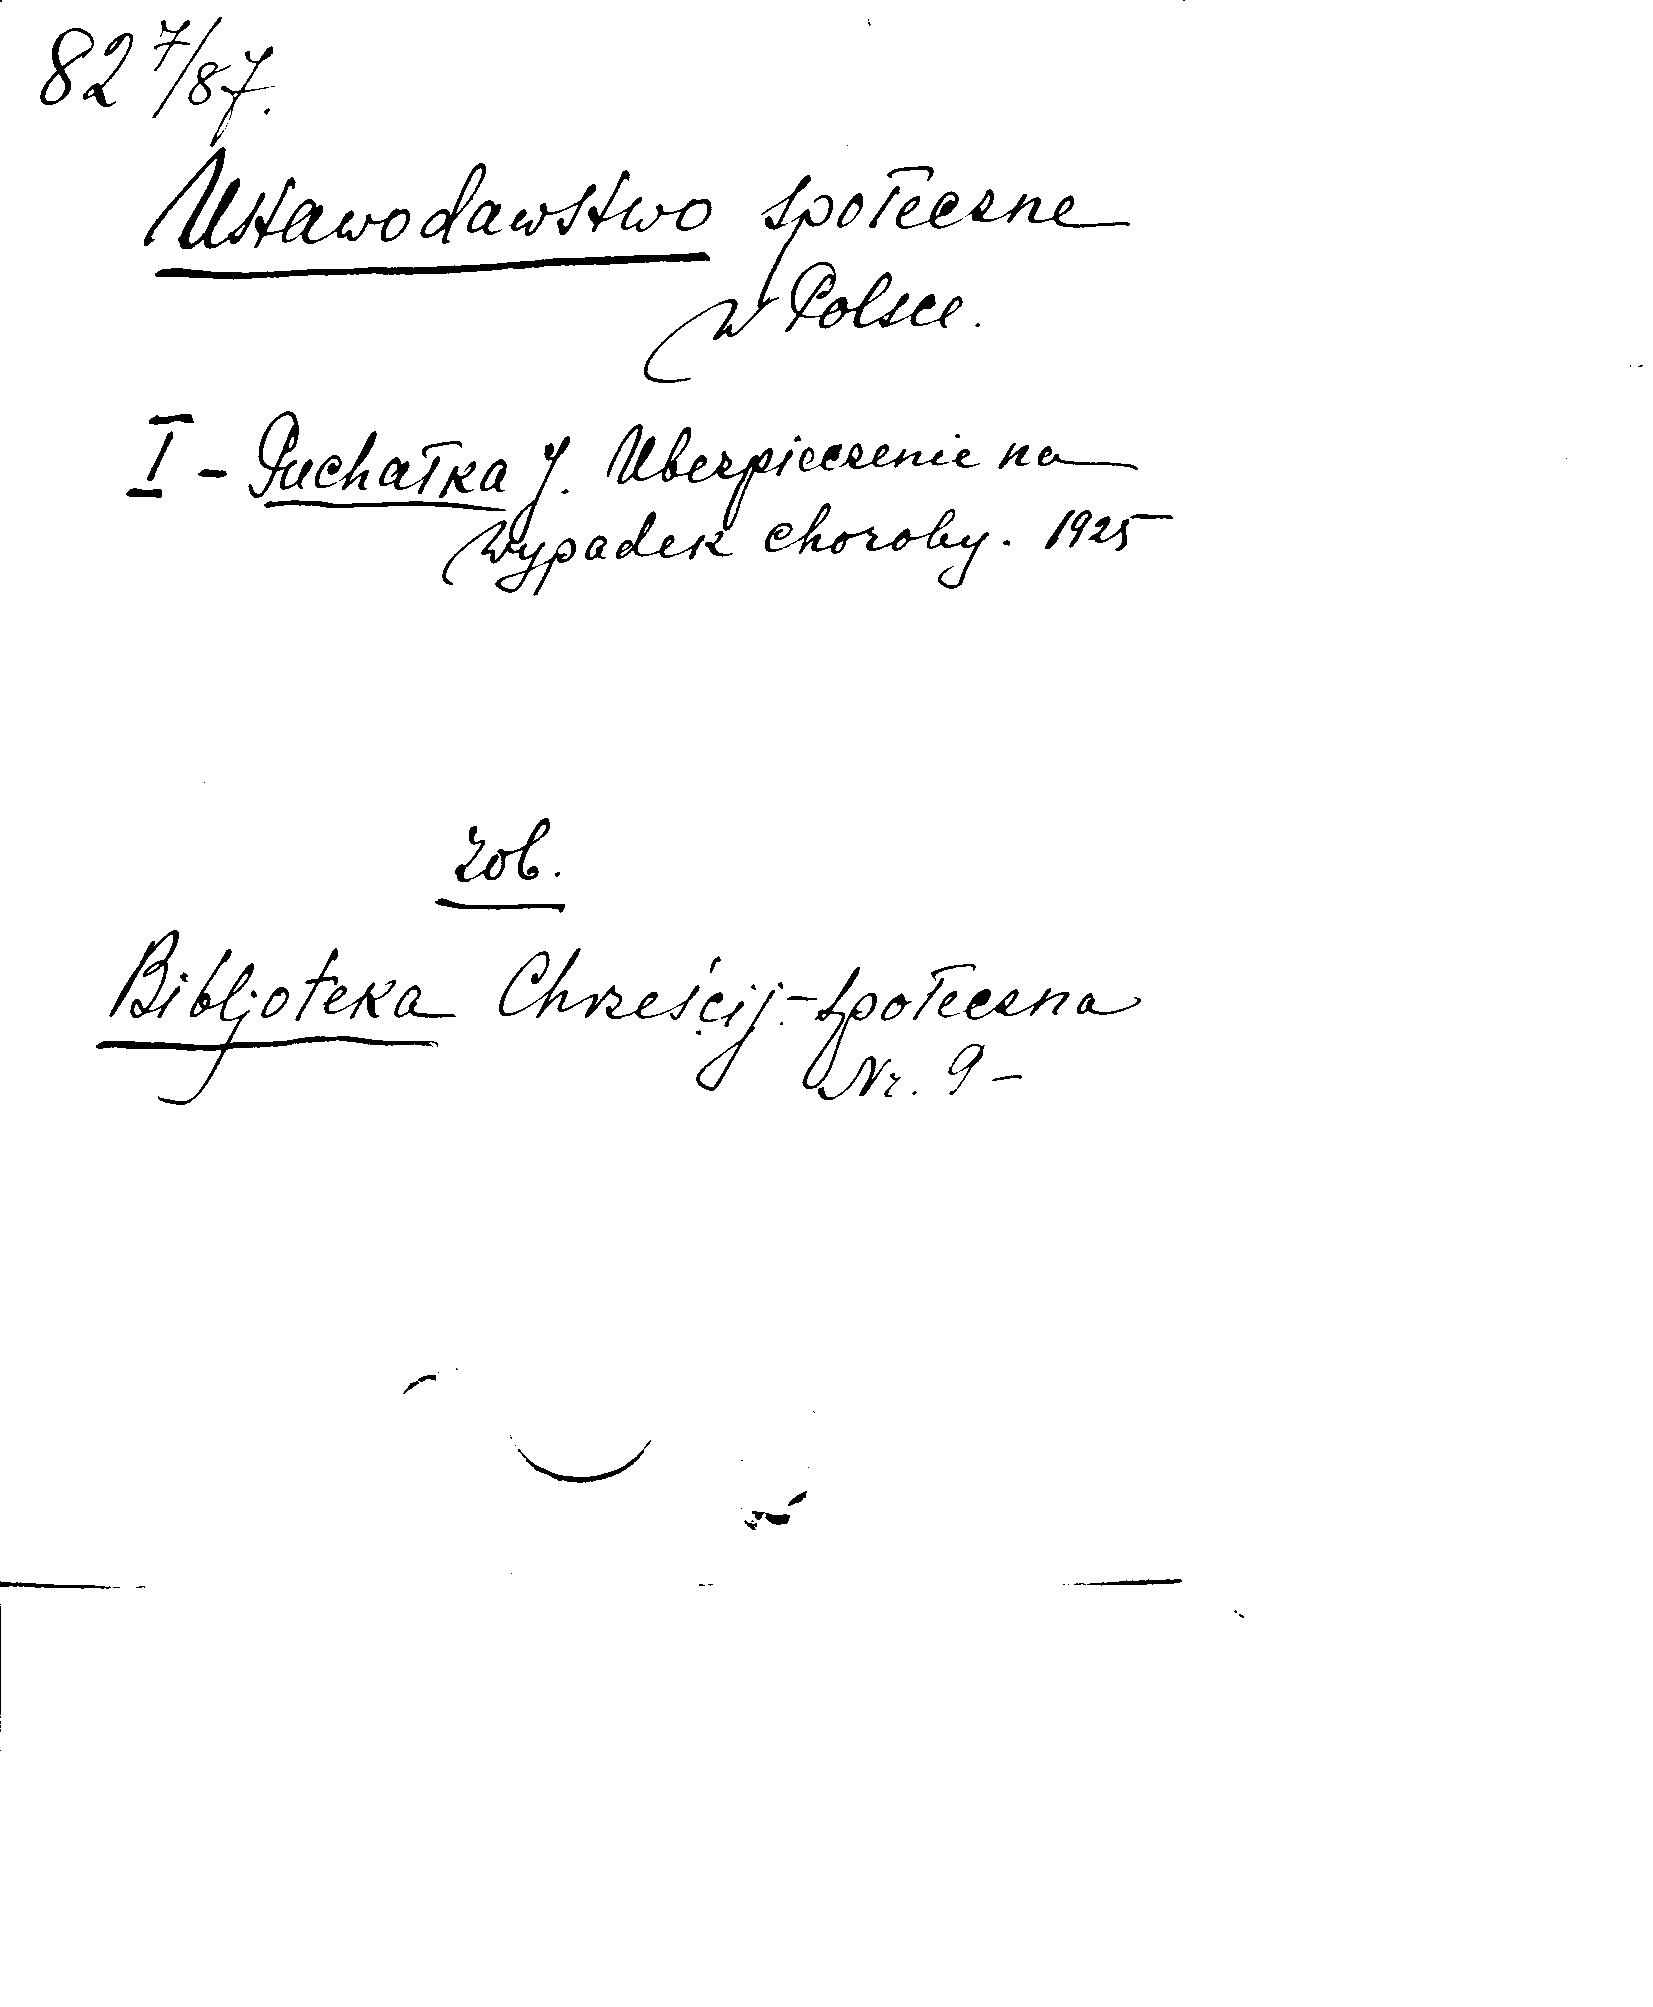 82 7/87.
Ustawodawstwo społeczne
w Polsce.
I - Puchałka J. Ubezpieczenie na
wypadek choroby. 1925
Zob.
Bibljoteka Chrześcij.-społeczna
Nr. 9 -